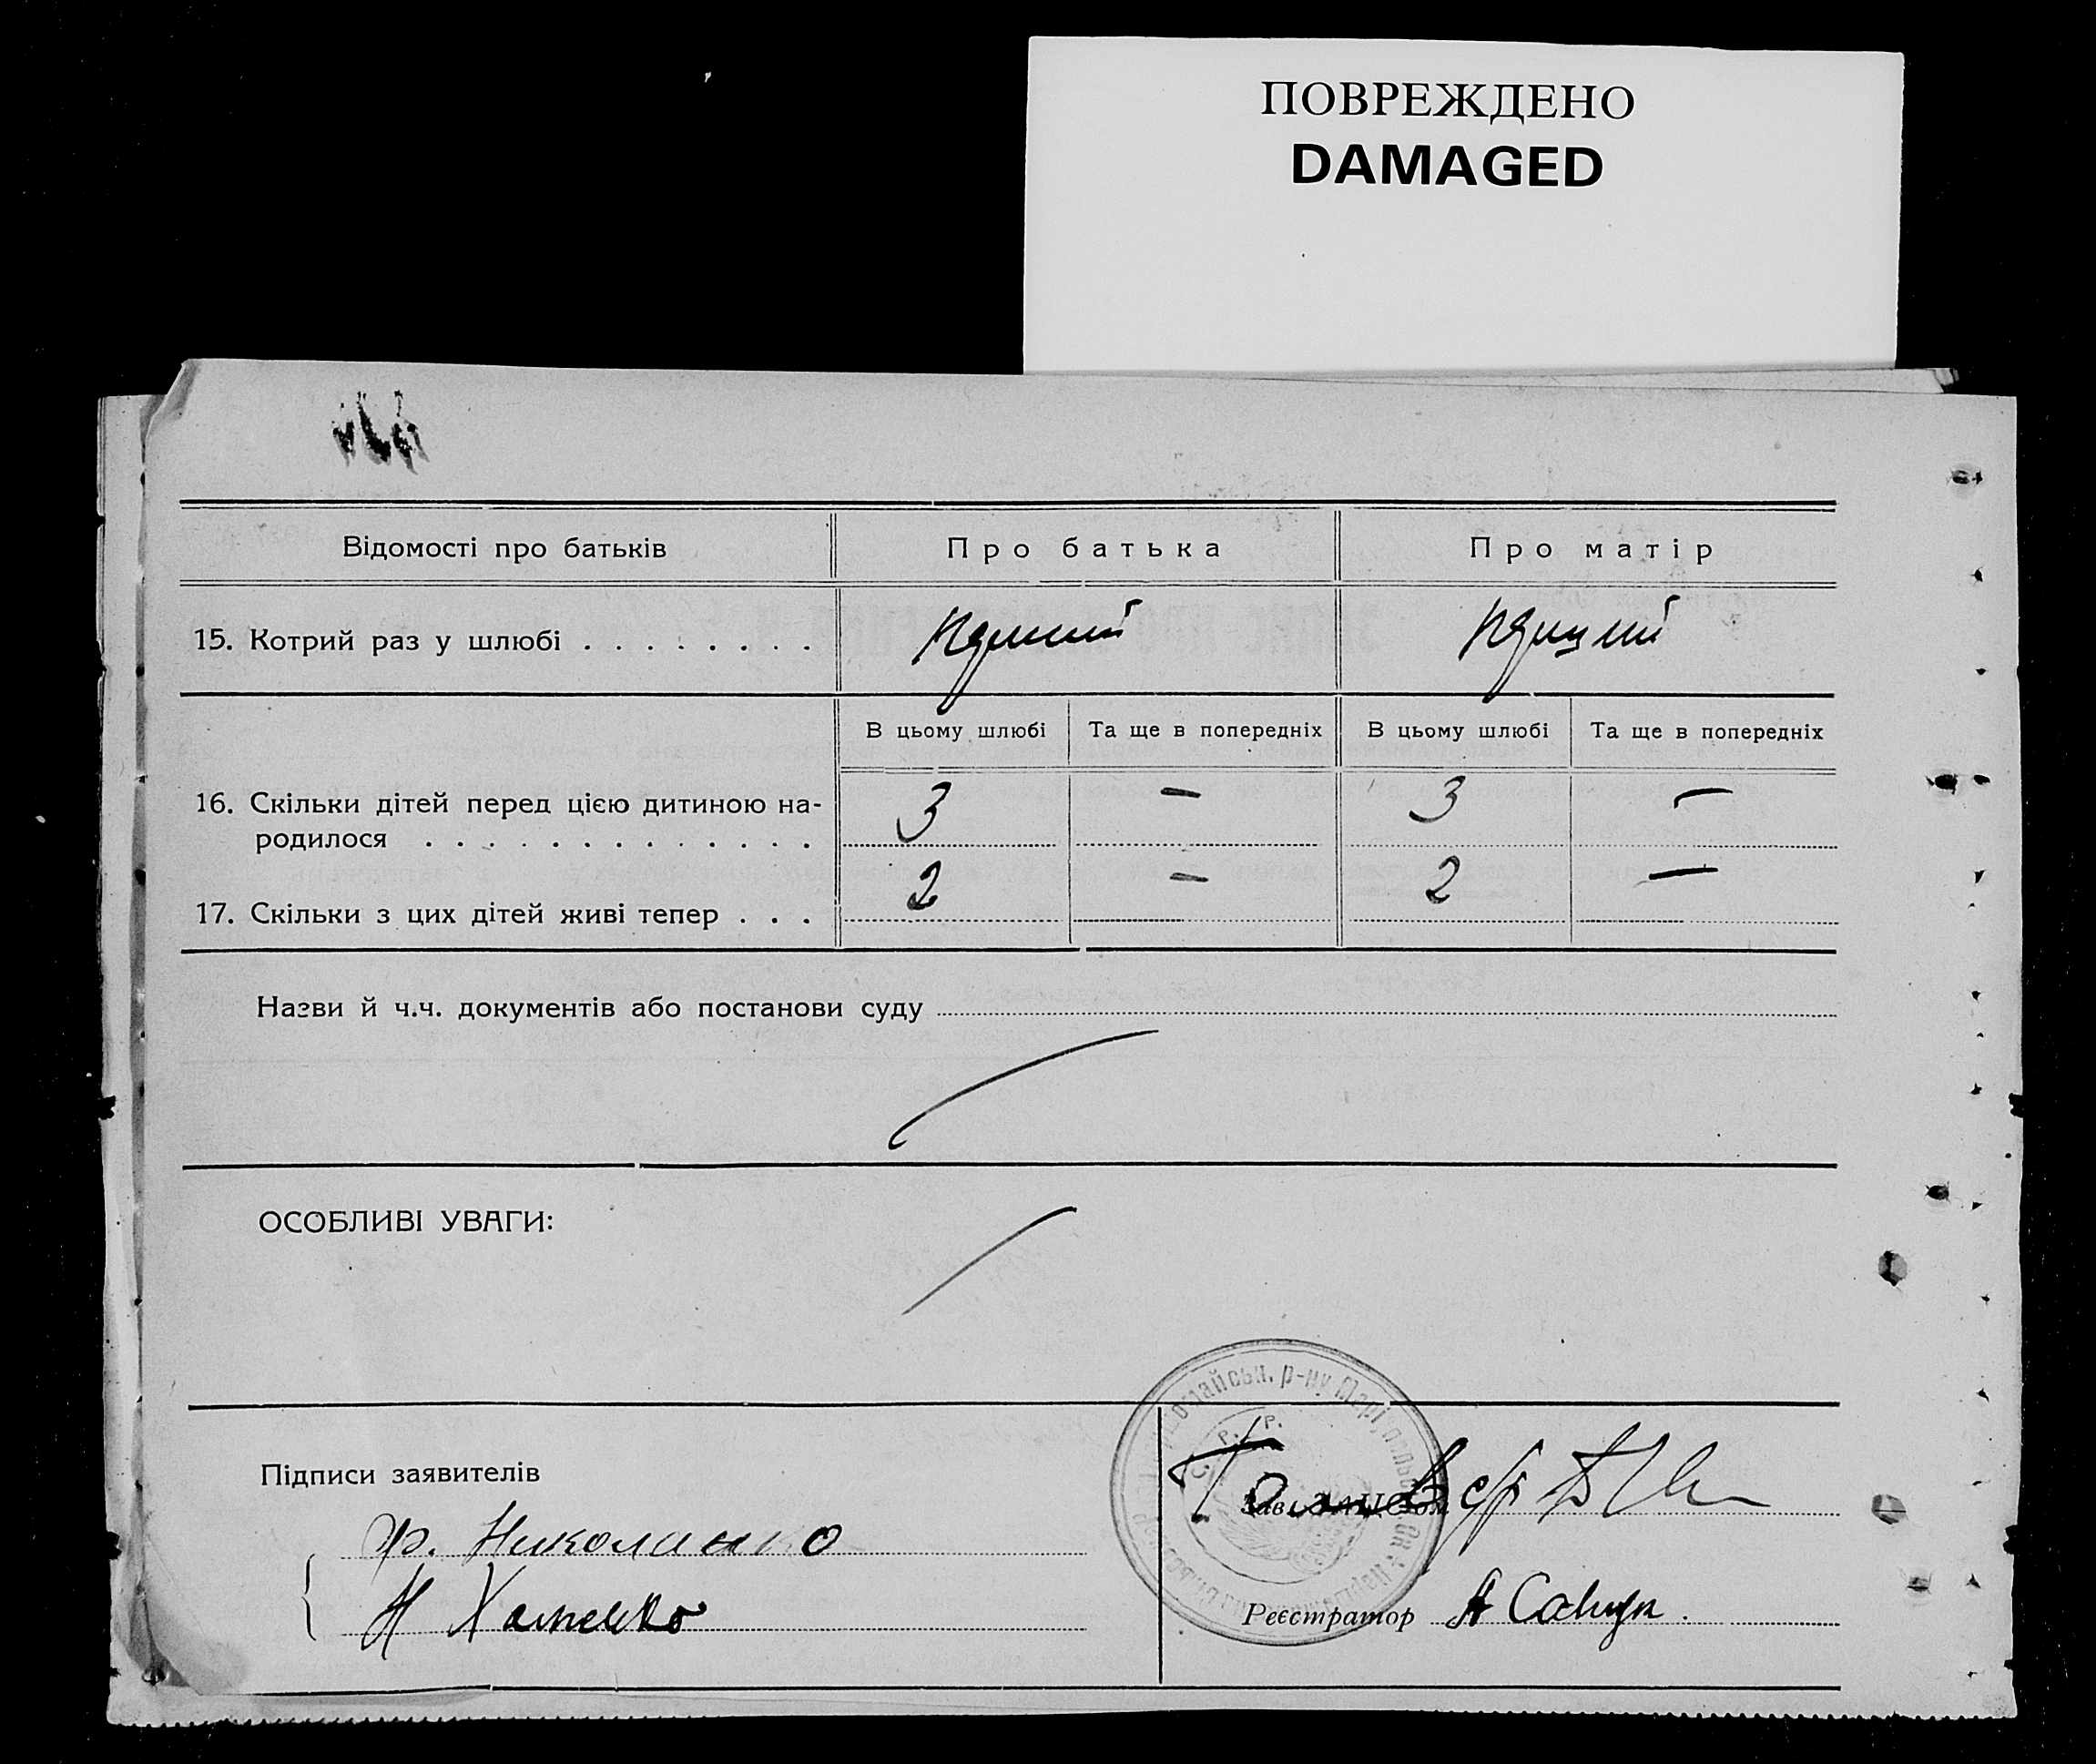 ПОВРЕЖДЕНО
DAMAGED
Відомості про батьків
Про батька
Про матір
15. Котрий раз у шлюбі . . . . . . . .
В цьому шлюбі
Та ще в попередніх
В цьому шлюбі
Та ще в попередніх
16. Скільки дітей перед цією дитиною на-
родилося . . . . . . . . . . . . . .
3
–
3
–
17. Скільки з цих дітей живі тепер . . .
2
–
2
–
Назви й ч.ч. документів або постанови суду
ОСОБЛИВІ УВАГИ:
Підписи заявителів
Реєстратор